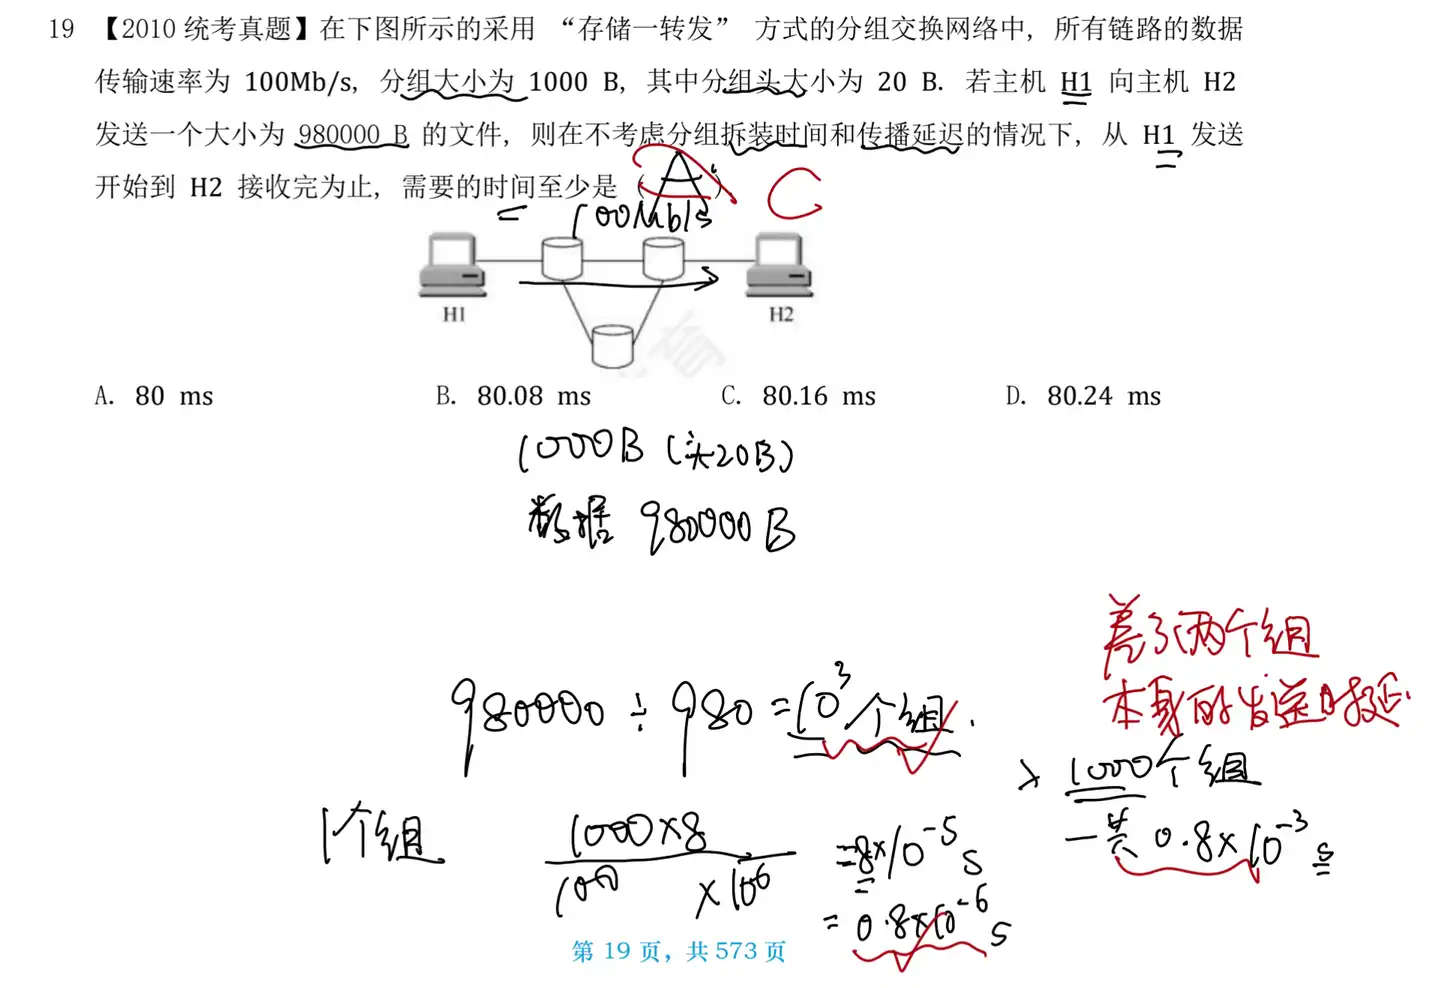 19 【2010 统考真题】在下图所示的采用 “存储一转发” 方式的分组交换网络中，所有链路的数据
传输速率为 100Mb/s，分组大小为 1000 B，其中分组头大小为 20 B. 若主机 H1 向主机 H2
发送一个大小为 980000 B 的文件，则在不考虑分组拆装时间和传播延迟的情况下，从 H1 发送
开始到 H2 接收完为止，需要的时间至少是（A）
C
100Mb/s
H1
H2
A. 80 ms B. 80.08 ms C. 80.16 ms D. 80.24 ms
1000B (头20B)
数据 980000B
差了两个组
本身的发送时延.
980000 ÷ 980 = 10³个组.
1000个组
一共 0.8×10⁻³ s
1个组 1000×8 / 100×10⁶ = 8×10⁻⁵ s
= 0.8×10⁻⁶ s
第 19 页，共 573 页